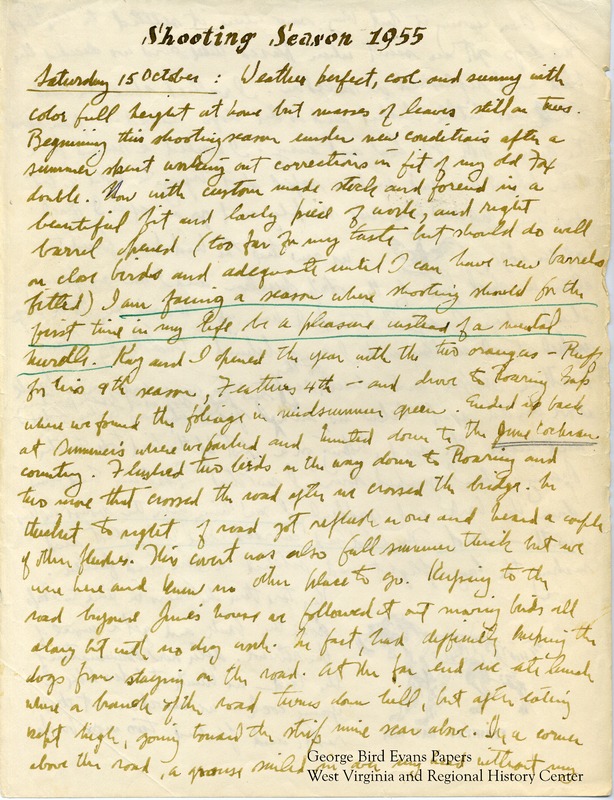 Shooting Season 1955
Saturday 15 October : Weather perfect, cool and sunny with
color full height at home but masses of leaves still on trees.
Beginning this shooting season under new conditions after a
summer spent working out corrections in fit of my old Fox
double. Now with custom made stock and forend in a
beautiful fit and lovely piece of work, and right
barrel opened (too far for my taste but should do well
on close birds and adequate until I can have new barrels
fitted) I am facing a season where shooting should for the
first time in my life be a pleasure instead of a mental
hurdle. Kay and I opened the year with the two oranges - Ruff
for his 9th season, Feathers 4th - and drove to Roaring
where we found the foliage in midsummer green. Ended up back
at Summers where we parked and hunted down to the June Cochran
country. Flushed two birds on the way down to Roaring and
two more that crossed the road after we crossed the bridge. In
thicket to right of road got reflush on one and heard a couple
of other flushes. This covert was also full summer thick but we
were here and knew no other place to go. Keeping to the
road beyond June's house we followed it out moving birds all
along but with no dog work. In fact, had difficulty keeping the
dogs from staying on the road. At the far end we ate lunch
where a branch of the road turns down hill, but after eating
kept high, going toward the strip mine scar above. In a corner
above the road, a grouse sailed in over my head without my
George Bird Evans Papers
West Virginia and Regional History Center